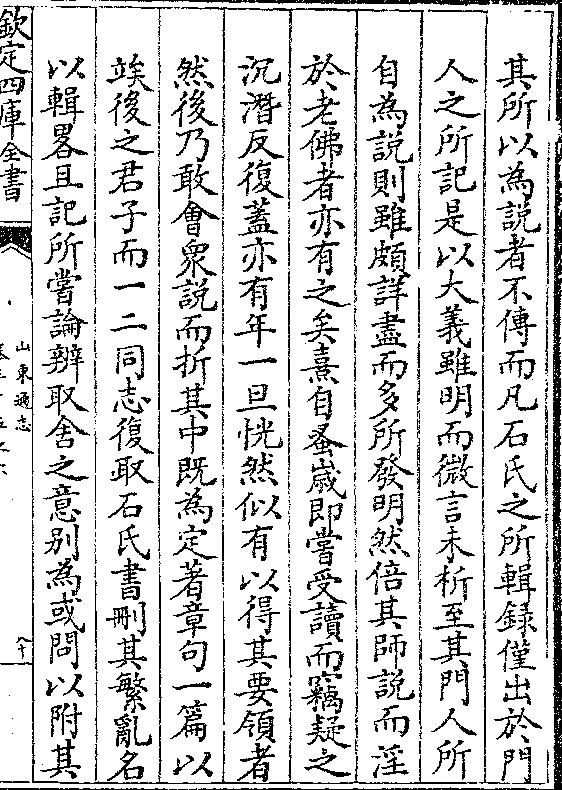 其所以為説者不傳而凡石氏之所輯録僅出於門
人之所記是以大義雖明而微言未析至其門人所
自為説則雖頗詳盡而多所發明然倍其師説而淫
於老佛者亦有之矣熹自蚤嵗即嘗受讀而竊疑之
沉潛反復蓋亦有年一旦恍然似有以得其要領者
然後乃敢會衆説而折其中既為定著章句一篇以
竢後之君子而一二同志復取石氏書刪其繁亂名
以輯畧且記所嘗論辨取舍之意别為或問以附其
欽定四庫全書
山東通志